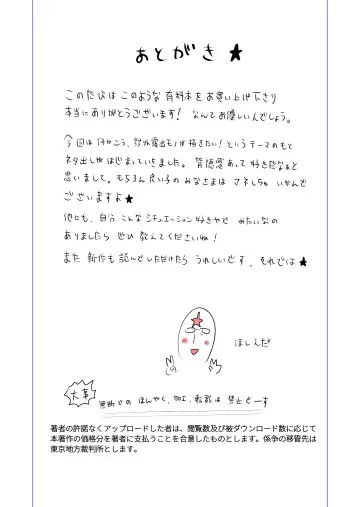 あとがき★
このたびは このような 有料本を お買い上げ下さり
本当に ありがとうございます! なんて お優しい人でしょう。
今回は 何かこう、野外露出モノが描きたい!というテーマのもと
ネタ出しが はじまっていきました。背徳感あって 好きだなぁと
思いまして。もちろん 良い子の みなさまは マネしちゃ いかんで
ございますよ★
他にも、自分 こんな シチュエーション 好きやで みたいなの
ありましたら ぜひ 教えて くださいね!
また 新作も 読んでいただけたら うれしいです。それでは★
ほしえだ
大事
無断での ほんやく、加工、転載は 禁止でーす
著者の許諾なくアップロードした者は、閲覧数及び被ダウンロード数に応じて
本著作の価格分を著者に支払うことを合意したものとします。係争の移管先は
東京地方裁判所とします。